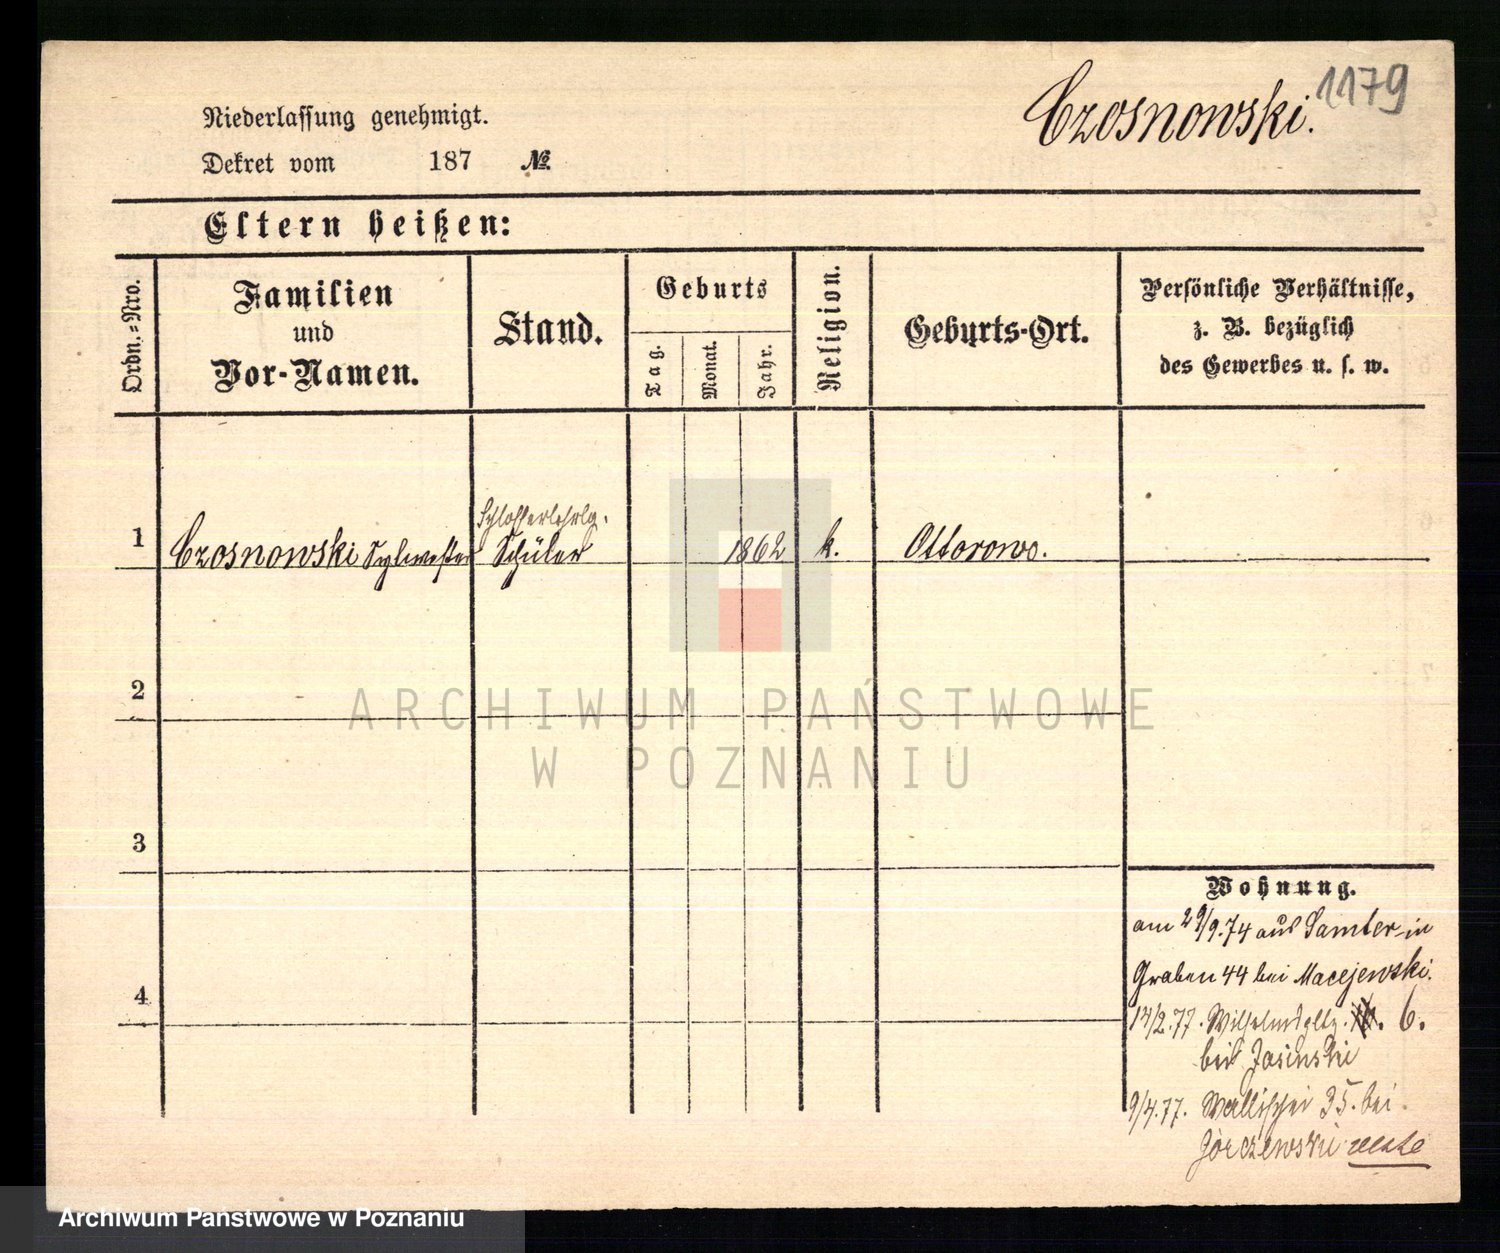 Czosnowski. 1179
Niederlassung genehmigt.
Dekret vom 187 №
Eltern heißen:
Ordn.-Nro.
Familien
und
Vor-Namen.
Stand.
Geburts
Tag.
Monat.
Jahr.
Religion.
Geburts-Ort.
Persönliche Verhältnisse,
z. B. bezüglich
des Gewerbes u. s. w.
Schlosserlehrlg.
1 Czosnowski Sylwester Schüler 1862 k. Ottorowo.
2
3
4
Wohnung.
am 29/9.74 aus Samter in
Graben 44 bei Macejewski.
/2.77. 6.
bei Jasinski
9/4.77. Wallischei 35. bei
Jorczewski
ARCHIWUM PAŃSTWOWE
W POZNANIU
Archiwum Państwowe w Poznaniu